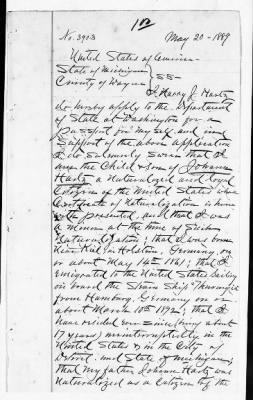 No. 3903 May 20 - 1889
United States of America
State of Michigan } SS-
County of Wayne
I, Harry J. Hartz
do hereby apply to the Department
of State at Washington for a
passport for my self and in
support of the above application
I do solemnly swear that I
am the Child Son of Johann
Hartz a naturalized and loyal
Citizen of the United States whose
Certificate of Naturalization is here
with presented, and that I was
a minor at the time of such
Naturalization; that I was born
Kiel in Holstein, Germany, on
or about May 14th 1861; that I
emigrated to the United States Sailing
on board the Steam Ship "Thuringia"
from Hamburg, Germany on or
about March 10th 1872; that I
have resided ever since (being about
17 years) uninterruptedly in the
United States & in the City of
Detroit and State of Michigan;
that my father Johann Hartz was
naturalized as a Citizen of the